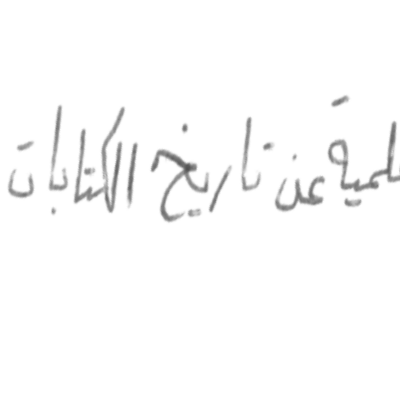 لمية عن تاريخ الكتابات